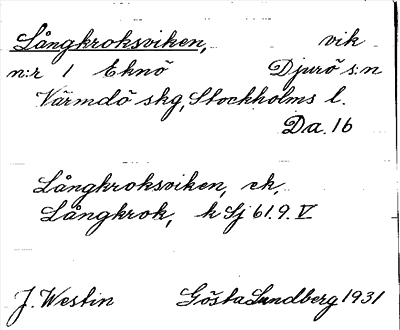 Långkroksviken, vik
n:r 1 Eknö Djurö s:n
Värmdö skg, Stockholms l.
Da. 16
Långkroksviken, ek,
Långkrok, k Sj 61.9. V
J. Westin Gösta Lundberg 1931